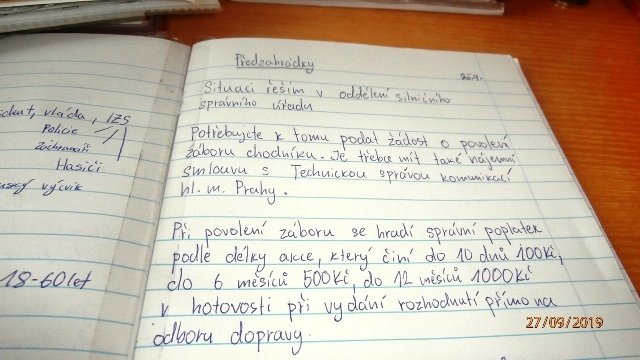 ident, vláda, IZS
Policie
Záchranáři
Hasiči
výcvik
18-60 let
Předzahrádky
26.9.
Situaci řeším v oddělení silničního
správního úřadu
Potřebujete k tomu podat žádost o povolení
záboru chodníku. Je třeba mít také nájemní
smlouvu s Technickou správou komunikací
hl. m. Prahy.
Při povolení záboru se hradí správní poplatek
podle délky akce, který činí do 10 dnů 100Kč,
do 6 měsíců 500Kč, do 12 měsíců 1000Kč
v hotovosti při vydání rozhodnutí přímo na
odboru dopravy.
27/09/2019